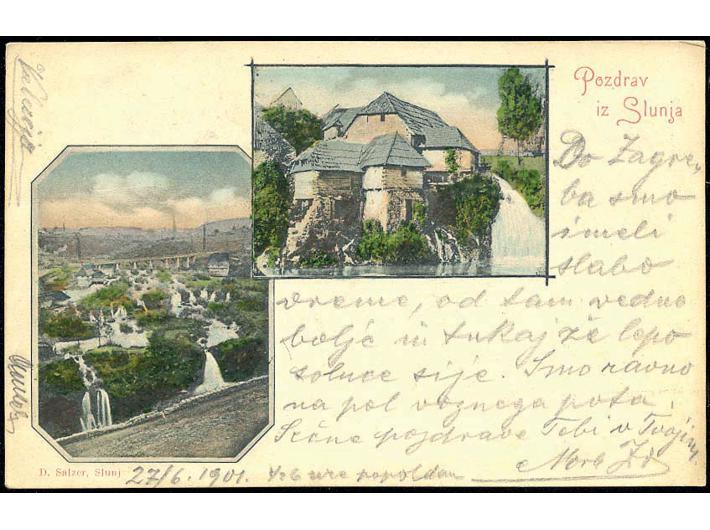 Pozdrav
iz Slunja
Do Zagre-
ba smo
imeli
slabo
vreme, od tam vedno
boljé in tukaj že lepo
solnce sije. Smo ravno
na pol voznega pota.
Sčne pozdrave Tebi v Tvojim
D. Salzer, Slunj
27/6. 1901. ure popoldan